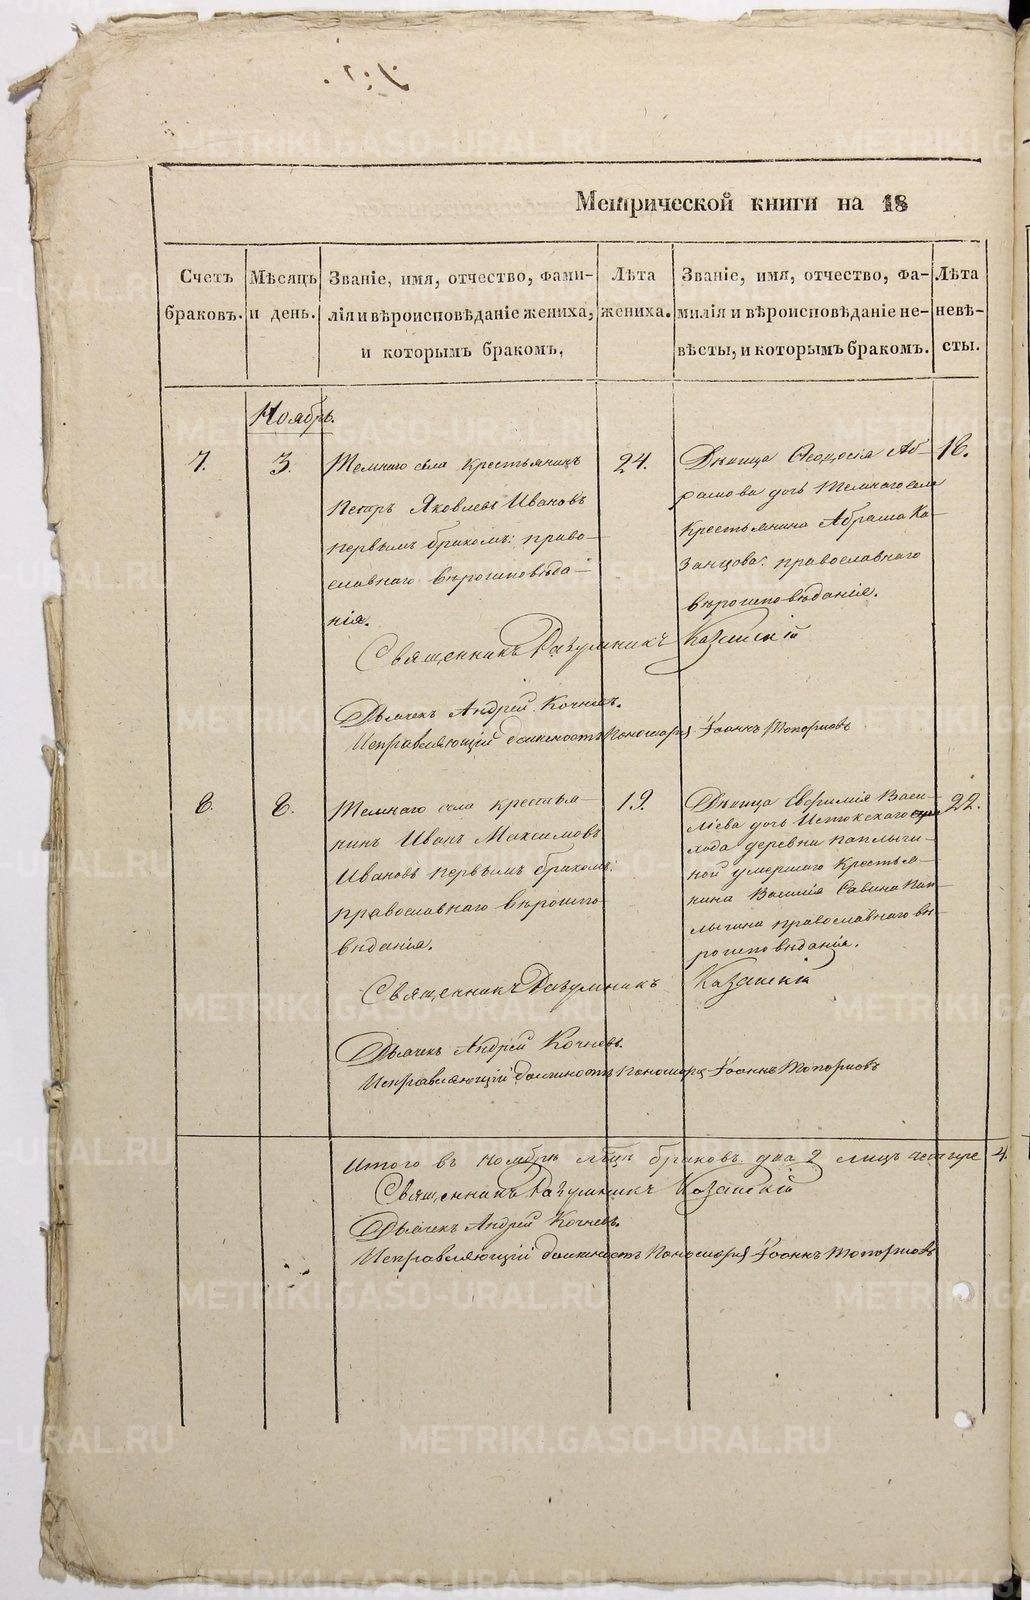 Метрической книги на 18
Счетъ браковъ.
Мѣсяцъ и день.
Званіе, имя, отчество, фами-
лія и вѣроисповѣданіе жениха,
и которымъ бракомъ.
Лѣта жениха.
Званіе, имя, отчество, фа-
милія и вѣроисповѣданіе не-
вѣсты, и которымъ бракомъ.
Лѣта невѣ-
сты.
Ноябрь.
7.
3.
села крестьянинъ
Петръ Яковлевъ Ивановъ
первымъ бракомъ: право-
славнаго вѣроисповѣда-
нія.
24.
Дѣвица Ѳеодосія Аб-
рамова дочь села
Крестьянина Абрама Ка-
занцова: православнаго
вѣроисповѣданія.
Священникъ Разумникъ Казанскій
Дьячекъ Андрей Кочневъ.
Исправляющій должность Пономаря Іоаннъ Топорковъ
8.
8.
села крестья-
нинъ Иванъ Максимовъ
Ивановъ первымъ бракомъ:
православнаго вѣроиспо-
вѣданія.
19.
Дѣвица Евфимія Васи-
ліева дочь Истокскаго при
хода деревни
ной умершаго Крестья-
нина Василія Савина
православнаго вѣ-
роисповѣданія.
22.
Священникъ Разумникъ Казанскій
Дьячекъ Андрей Кочневъ.
Исправляющій должность Пономаря Іоаннъ Топорковъ
Итого въ Ноябрѣ мцѣ браковъ два 2 лицъ четыре 4.
Священникъ Разумникъ Казанскій
Дьячекъ Андрей Кочневъ.
Исправляющій должность Пономаря Іоаннъ Топорковъ
METRIKI.GASO-URAL.RU